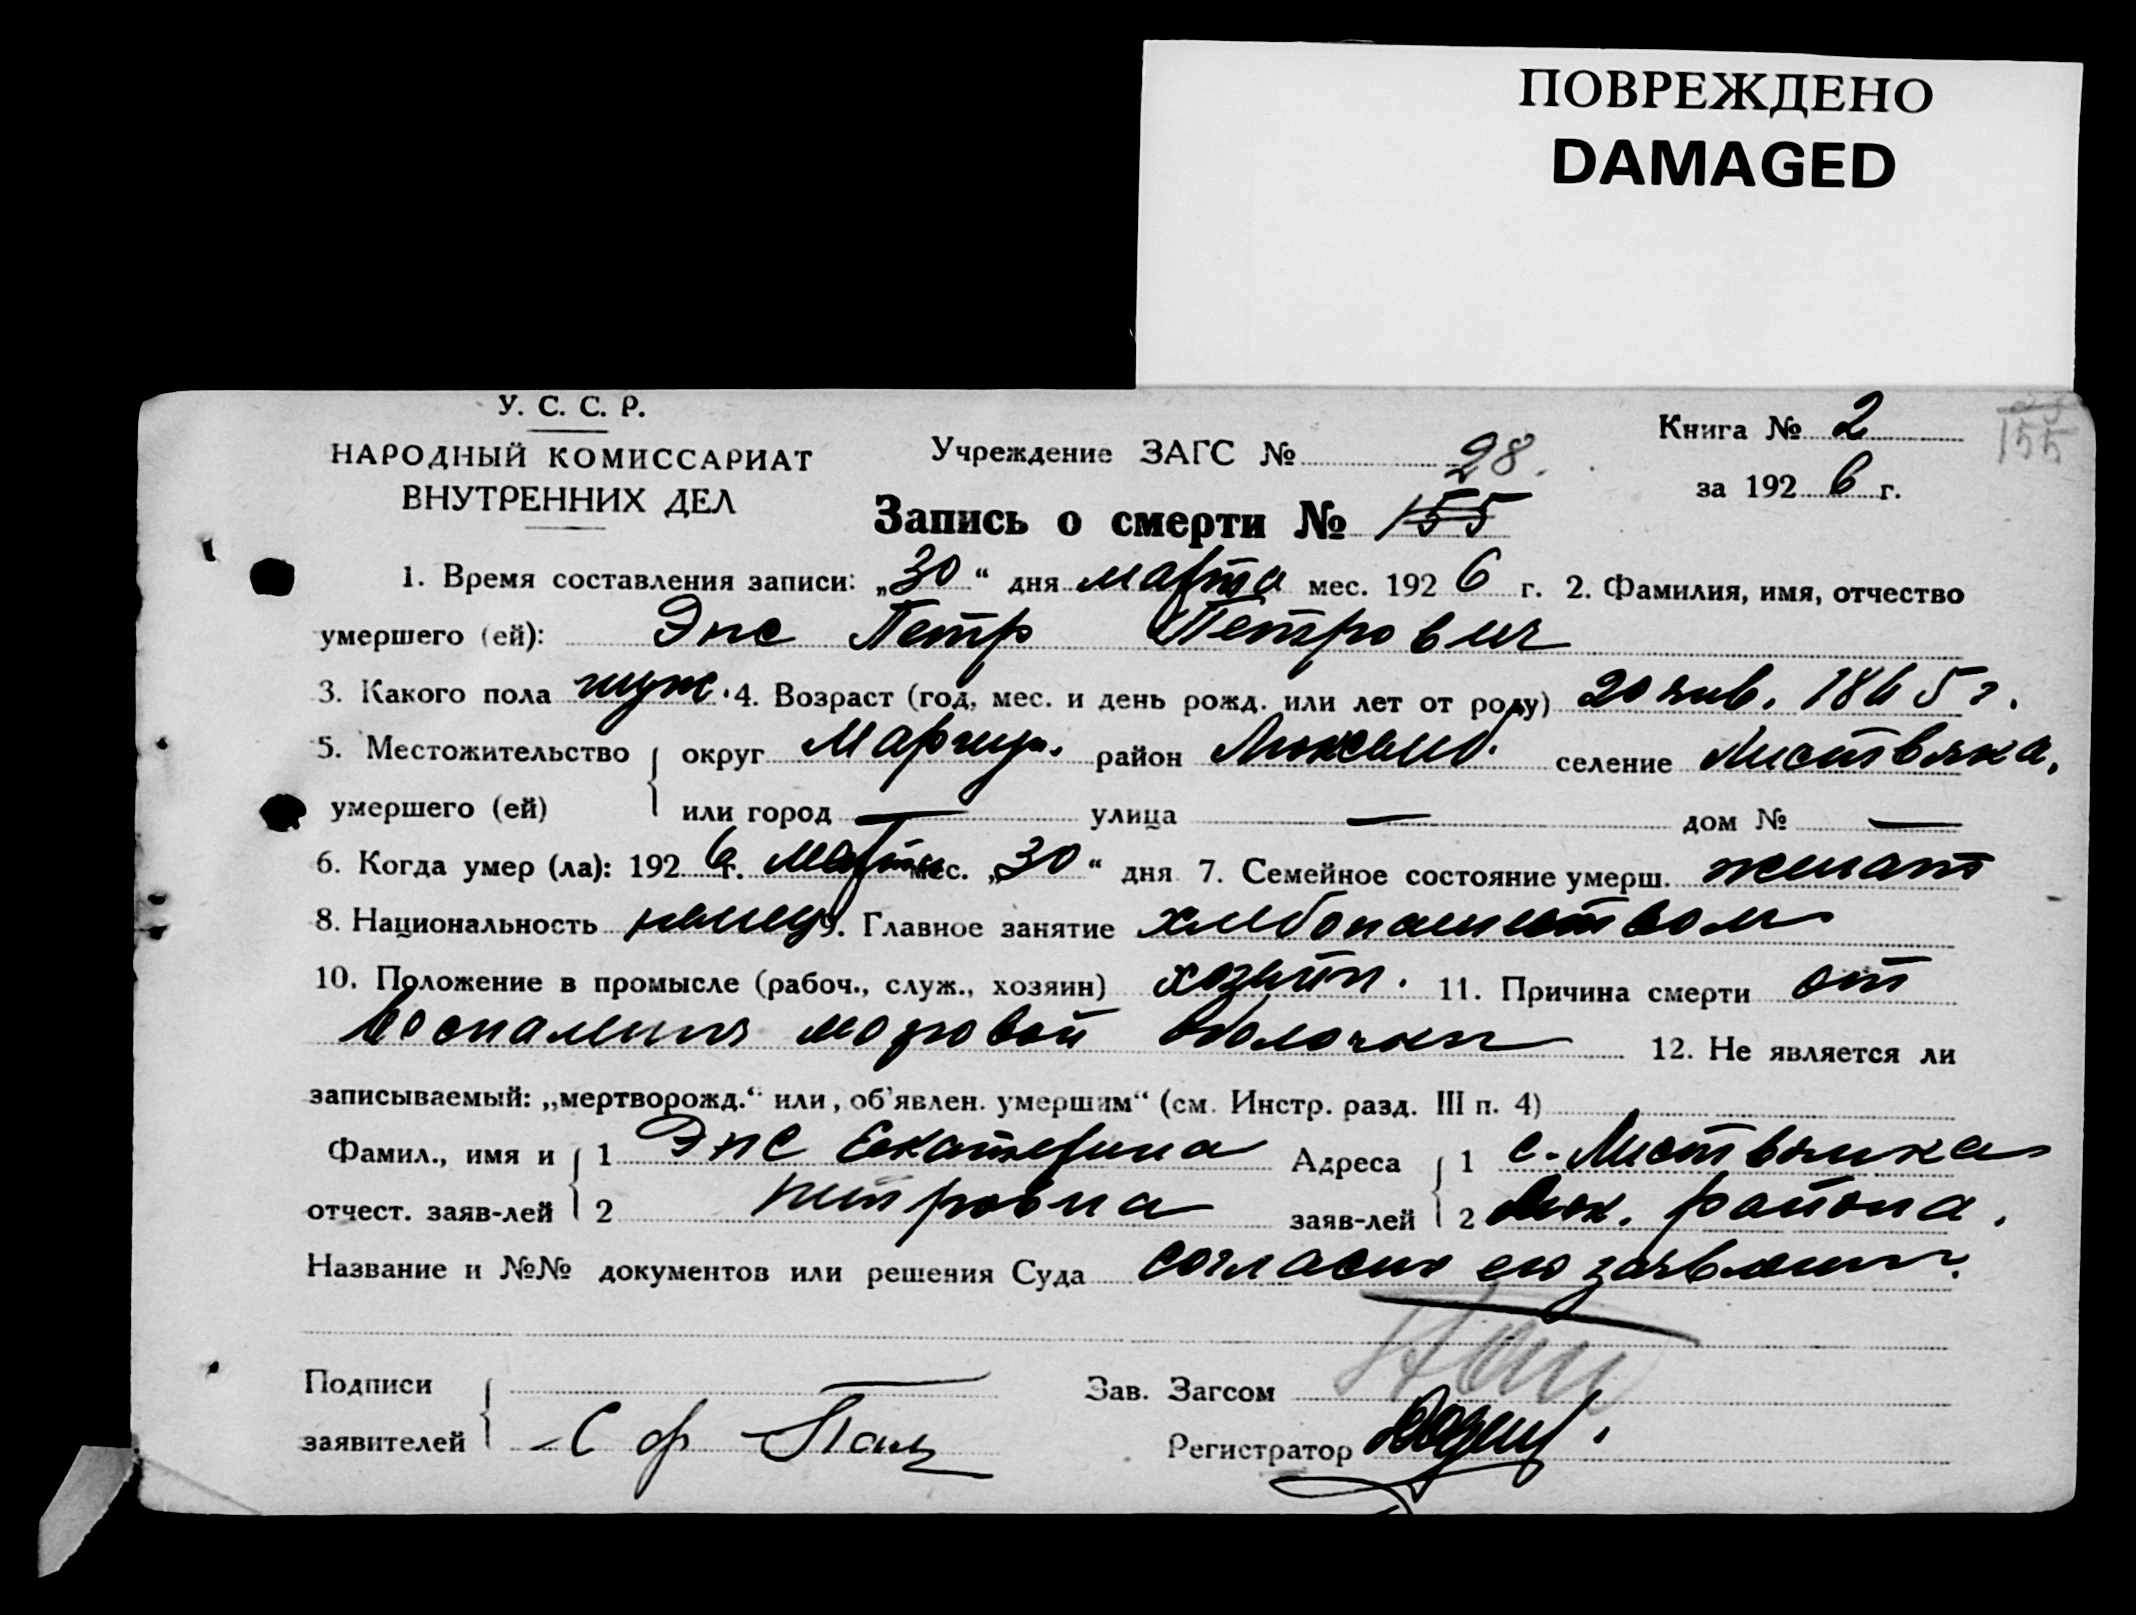 ПОВРЕЖДЕНО
DAMAGED
У. С. С. Р.
НАРОДНЫЙ КОМИССАРИАТ
ВНУТРЕННИХ ДЕЛ
Учреждение ЗАГС № 28.
Книга № 2
за 1926 г.
155
Запись о смерти № 155
1. Время составления записи: „30“ дня марта мес. 1926 г. 2. Фамилия, имя, отчество
умершего (ей): Эпс Петр Петрович
3. Какого пола муж. 4. Возраст (год, мес. и день рожд. или лет от роду) 20 янв. 1865 г.
5. Местожительство округ Мариуп. район Люксемб. селение Листвянка,
умершего (ей) или город — улица — дом № —
6. Когда умер (ла): 1926 г. марта мес. „30“ дня 7. Семейное состояние умерш. женат
8. Национальность немец 9. Главное занятие хлебопашеством
10. Положение в промысле (рабоч., служ., хозяин) хозяин. 11. Причина смерти от
воспаления мозговой оболочки 12. Не является ли
записываемый: „мертворожд.“ или „об'явлен. умершим“ (см. Инстр. разд. III п. 4)
Фамил., имя и 1 Эпс Екатерина Адреса 1 с. Листвянка
отчест. заяв-лей 2 Петровна заяв-лей 2 Люк. района.
Название и №№ документов или решения Суда согласно его заявления.
Подписи Зав. Загсом
заявителей Регистратор